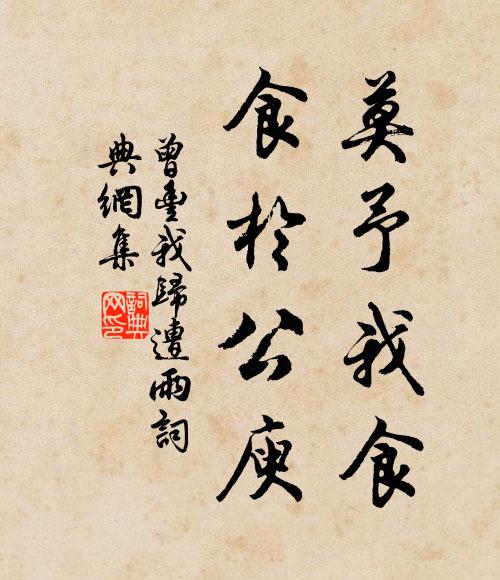 莫予我食
食於公庾
曾豐我歸遭雨詞
典網集
詞典
网印